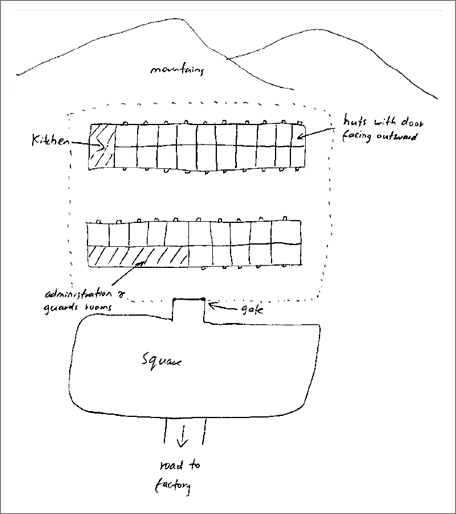 mountains
Kitchen
huts with door
facing outward
administration &
guards rooms
gate
Square
road to
factory